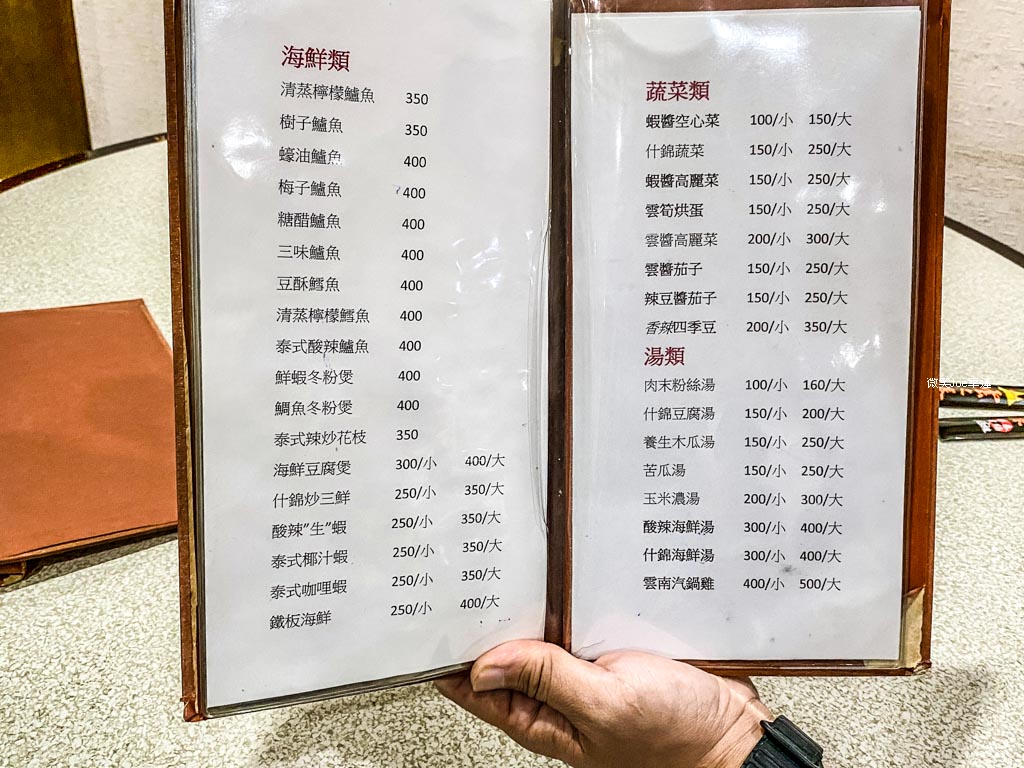 海鮮類
清蒸檸檬鱸魚 350
樹子鱸魚 350
蠔油鱸魚 400
梅子鱸魚 400
糖醋鱸魚 400
三味鱸魚 400
豆酥鱈魚 400
清蒸檸檬鱈魚 400
泰式酸辣鱸魚 400
鮮蝦冬粉煲 400
鯛魚冬粉煲 400
泰式辣炒花枝 350
海鮮豆腐煲 300/小 400/大
什錦炒三鮮 250/小 350/大
酸辣"生"蝦 250/小 350/大
泰式椰汁蝦 250/小 350/大
泰式咖哩蝦 250/小 350/大
鐵板海鮮 250/小 400/大
蔬菜類
蝦醬空心菜 100/小 150/大
什錦蔬菜 150/小 250/大
蝦醬高麗菜 150/小 250/大
雲筍烘蛋 150/小 250/大
雲醬高麗菜 200/小 300/大
雲醬茄子 150/小 250/大
辣豆醬茄子 150/小 250/大
香辣四季豆 200/小 350/大
湯類
肉末粉絲湯 100/小 160/大
什錦豆腐湯 150/小 200/大
養生木瓜湯 150/小 250/大
苦瓜湯 150/小 250/大
玉米濃湯 200/小 300/大
酸辣海鮮湯 300/小 400/大
什錦海鮮湯 300/小 400/大
雲南汽鍋雞 400/小 500/大